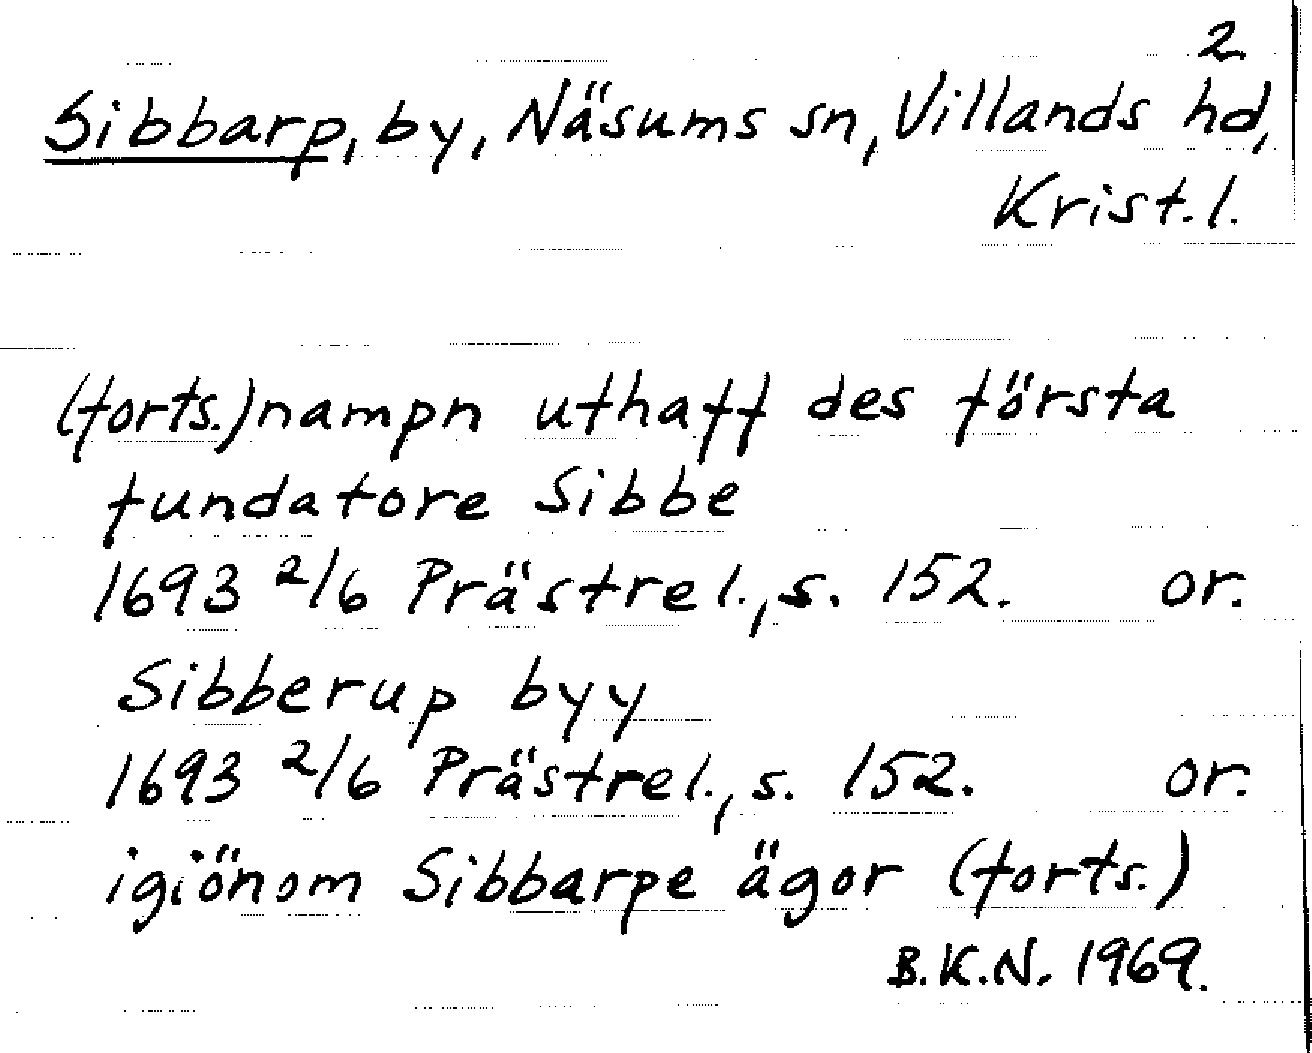 2
Sibbarp, by, Näsums sn, Villands hd,
Krist. l.
(forts.) nampn uthaff des första
fundatore Sibbe
1693 2/6 Prästrel., s. 152. or.
Sibberup byy
1693 2/6 Prästrel., s. 152. or.
igiönom Sibbarpe ägor (forts.)
B.K.N. 1969.